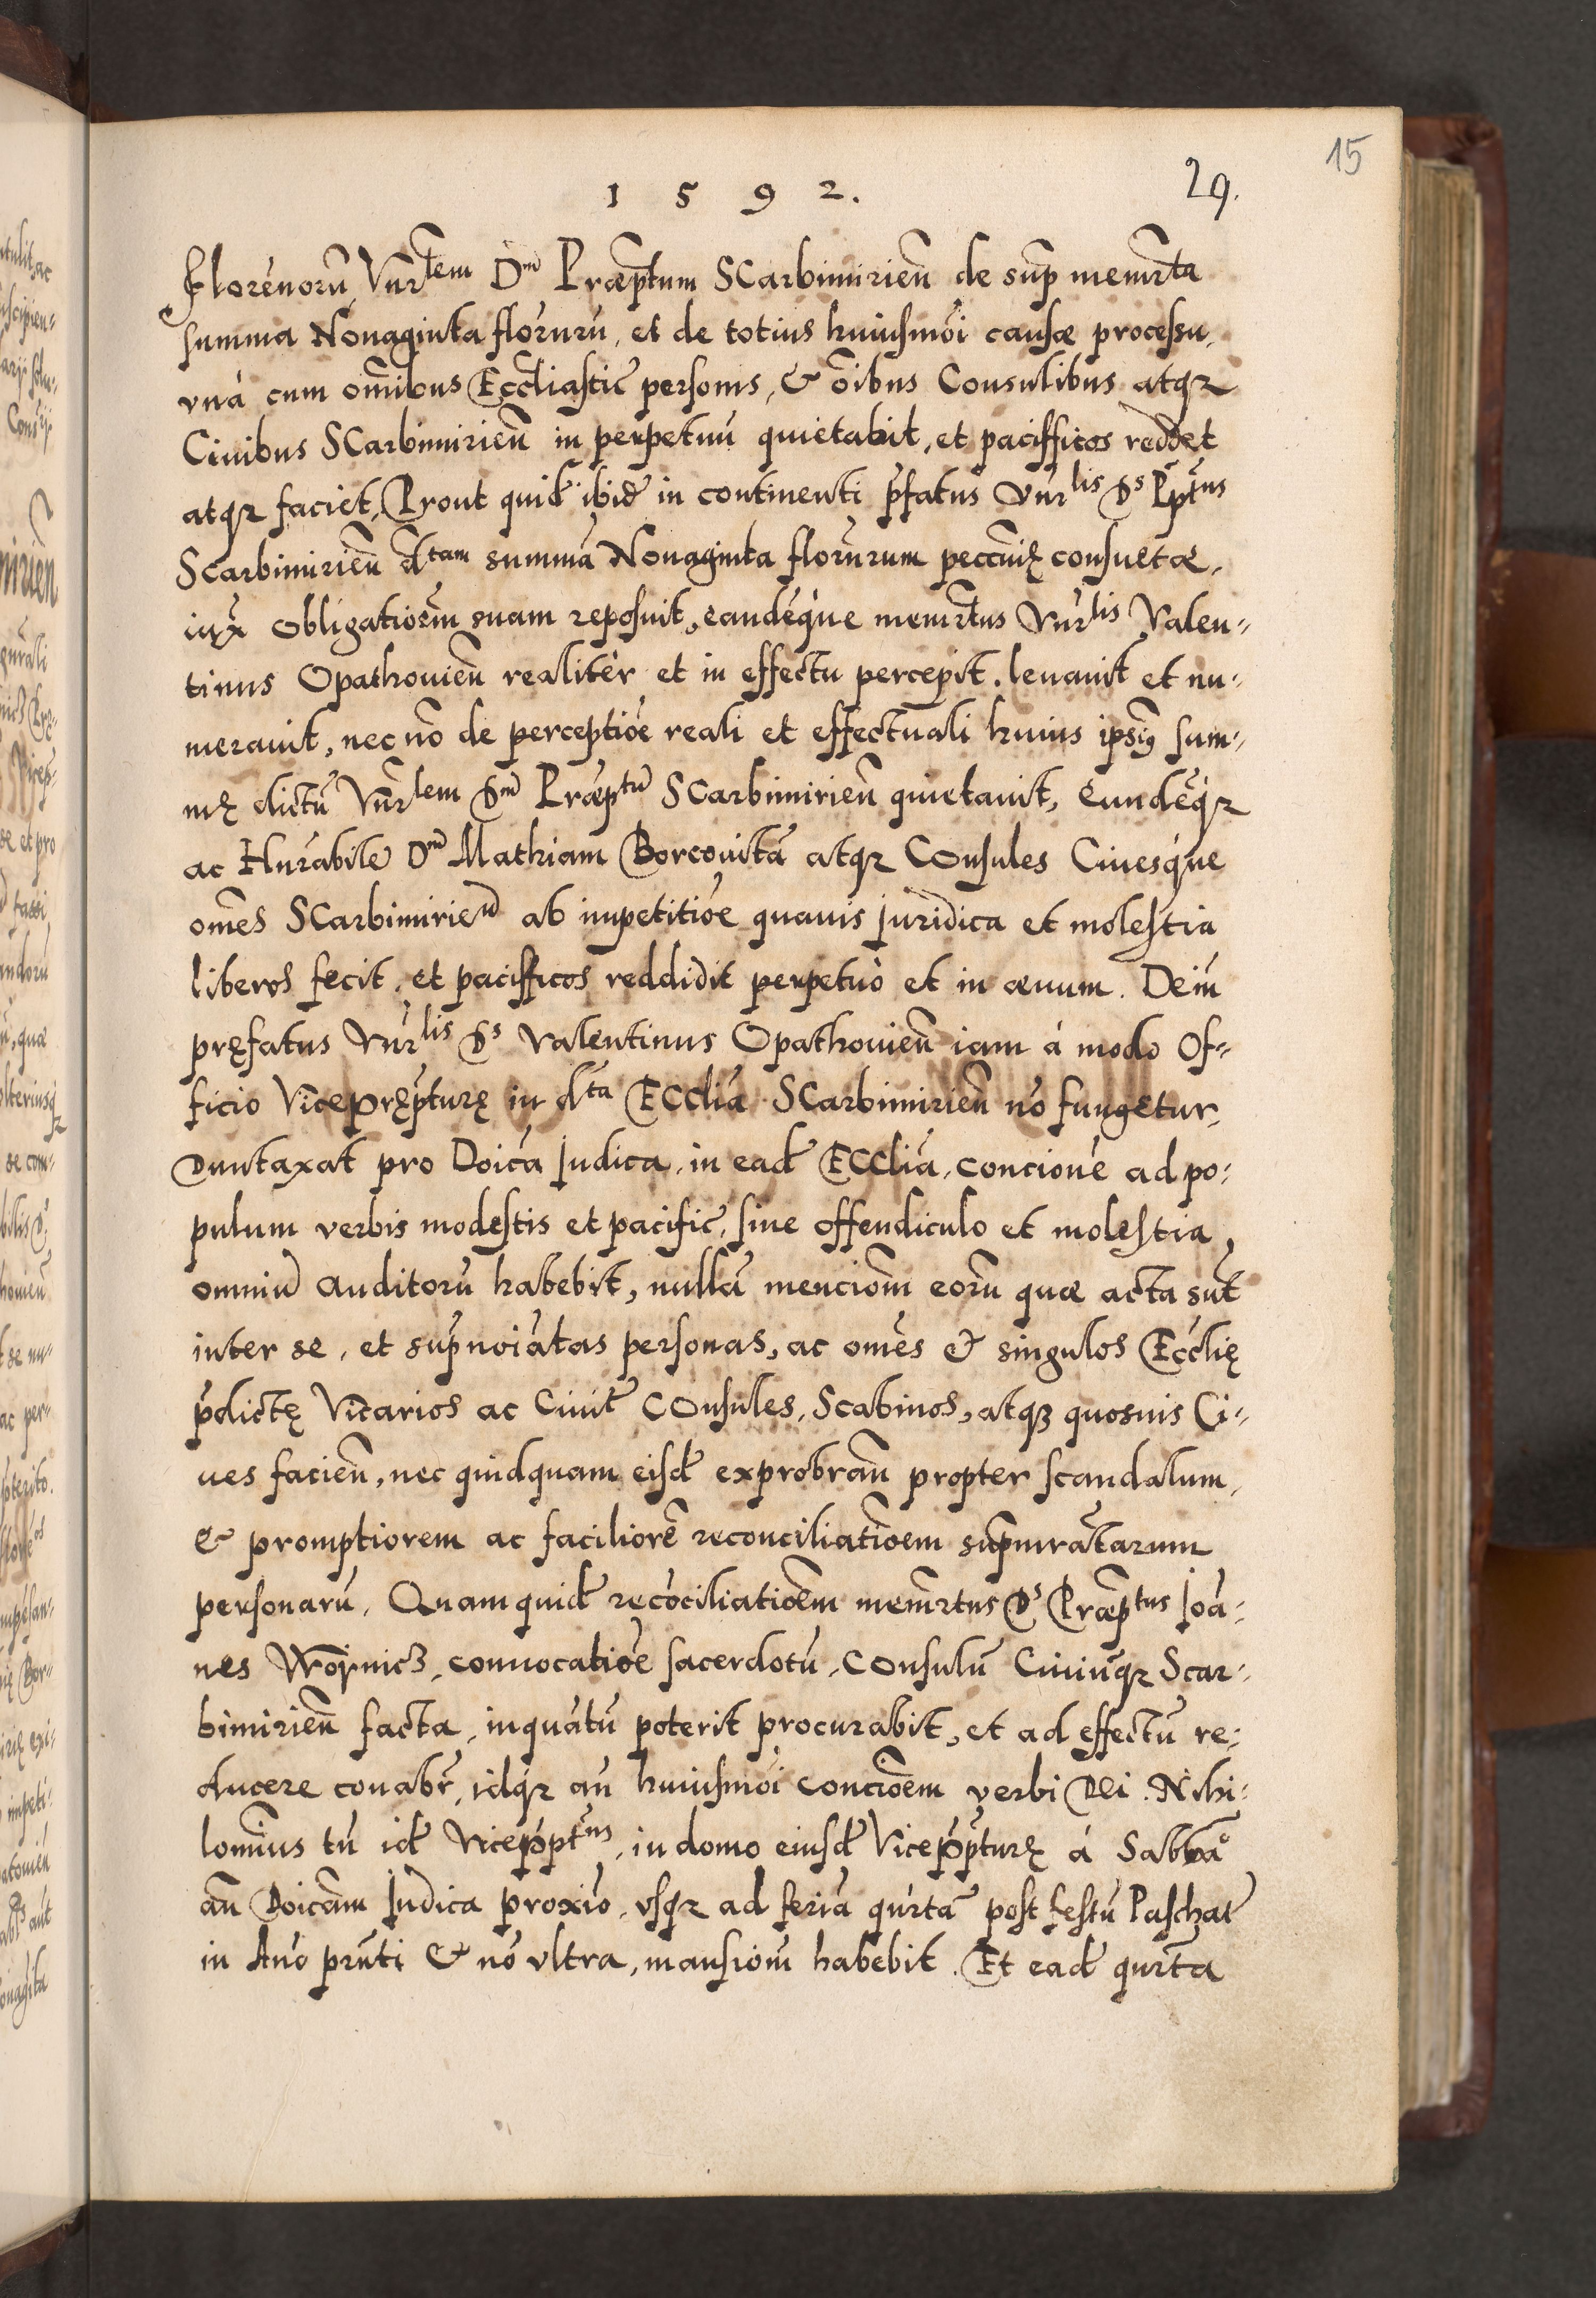 15
1 5 9 2. 29.
Florenorũ Vnr̃lem Dm̃ Præp̃tum SCarbimirieñ de sup̃ memr̃ta
summa Nonaginta florurũ, et de totius huiusmõi causæ processu,
vnà cum om̃ibus Eccl̃iasticẽ personis, & õibus Consulibus atqꝫ
Ciuibus SCarbimirieñ in perpetuũ quietabit, et pacifficos reddet
atqꝫ faciet, Prout quidẽ ibidẽ in continenti p̃fatus Vnr̃lis Ds P̃ptus
Scarbimirieñ dtam summã Nonaginta florurum peccũię consuetæ,
iux̃ obligatiom̃ suam reposuit, eandẽque memr̃tus Vnr̃lis Valen-
tinus Opathouieñ realitèr et in effectu percepit. leuauit et nu-
merauit, nec nõ de perceptiõe reali et effectuali huius ipsiꝰ sum-
mę dictũ Vnr̃lem Dm̃ Præptũ SCarbimirieñ quietauit, Eundẽqꝫ
ac Hnrãbilẽ Dm̃ Mathiam Borcouitã atqꝫ COnsules Ciuesque
om̃es SCarbimirieñ ab impetitiõe quauis Juridica et molestia
liberos fecit, et pacifficos reddidit perpetuò et in æuum. Deiñ
pręfatus Vnr̃lis Ds Valentinus Opathouieñ iam à modo Of-
ficio Vicepręp̃turę in dta ECcliã SCarbimirieñ nõ fungetur,
Duntaxat pro Doĩca Judica, in eadẽ ECCliã, concionẽ ad po-
pulum verbis modestis et pacificẽ, sine offendiculo et molestia,
omniũ auditorũ habebit, nullã mencioñm eorũ quæ acta sũt
inter se, et sup̃noĩatas personas, ac om̃es & singulos Ecclię
p̃dictę Vicarios ac Ciuitẽ COnsules, Scabinos, atqꝫ quosuis Ci-
ues facieñ, nec quidquam eisdẽ exprobrañ propter scandalum,
& promptiorem ac faciliorẽ reconciliatiõem sup̃mrãtarum
personarũ. Quamquidẽ recõciliatiõem memr̃tus Ds Præptus Joã-
nes Woÿnicz, conuocatiõe sacerdotũ, COnsulũ Ciuiũqꝫ Scar-
bimirieñ facta, inquãtũ poterit procurabit, et ad effectũ re-
ducere conabr̃, idqꝫ añ huiusmõi conciõem verbi Dei. Nihi-
lomĩus tũ idẽ Vicep̃ptus, in domo eiusdẽ Vicep̃pturę à Sabbão
añ Doĩcam Judica proxiõ, vsqꝫ ad feriã qũrtã post festũ Paschatẽ
in Añõ prñti & nõ vltra, mansioñm habebit. Et eadẽ qur̃ta